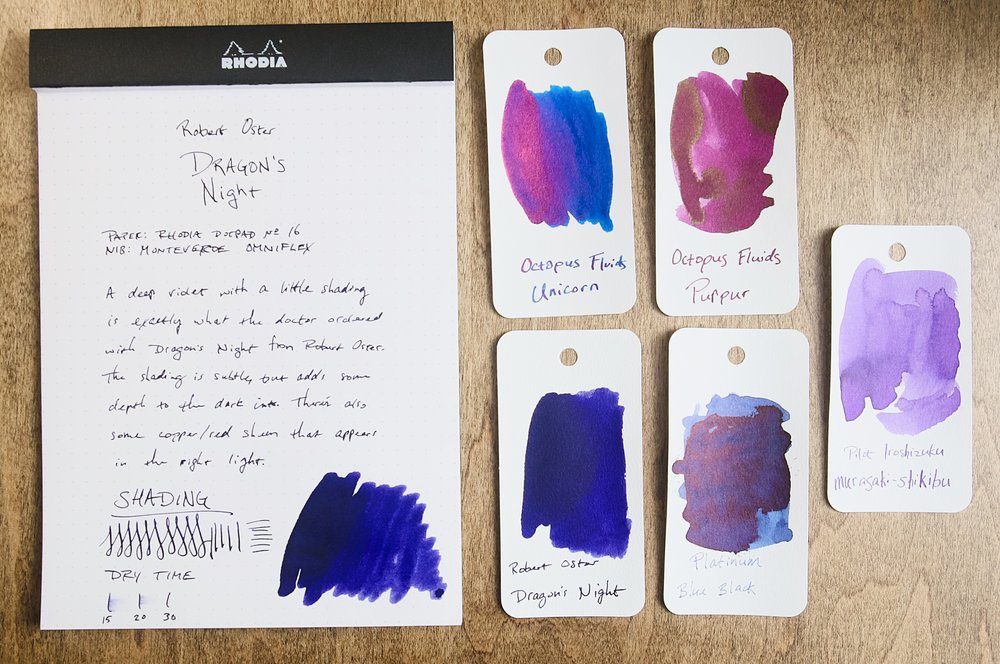 RHODIA
Robert Oster
DRAGON'S
Night
PAPER: RHODIA DOTPAD Nº 16
NIB: MONTEVERDE OMNIFLEX
A deep violet with a little shading
is exactly what the doctor ordered
with Dragon's Night from Robert Oster.
The shading is subtle, but adds some
depth to the dark ink. There's also
some copper/red sheen that appears
in the right light.
SHADING
DRY TIME
15 20 30
Octopus Fluids
Unicorn
Octopus Fluids
Purpur
Robert Oster
Dragon's Night
Platinum
Blue Black
Pilot Iroshizuku
murasaki-shikibu